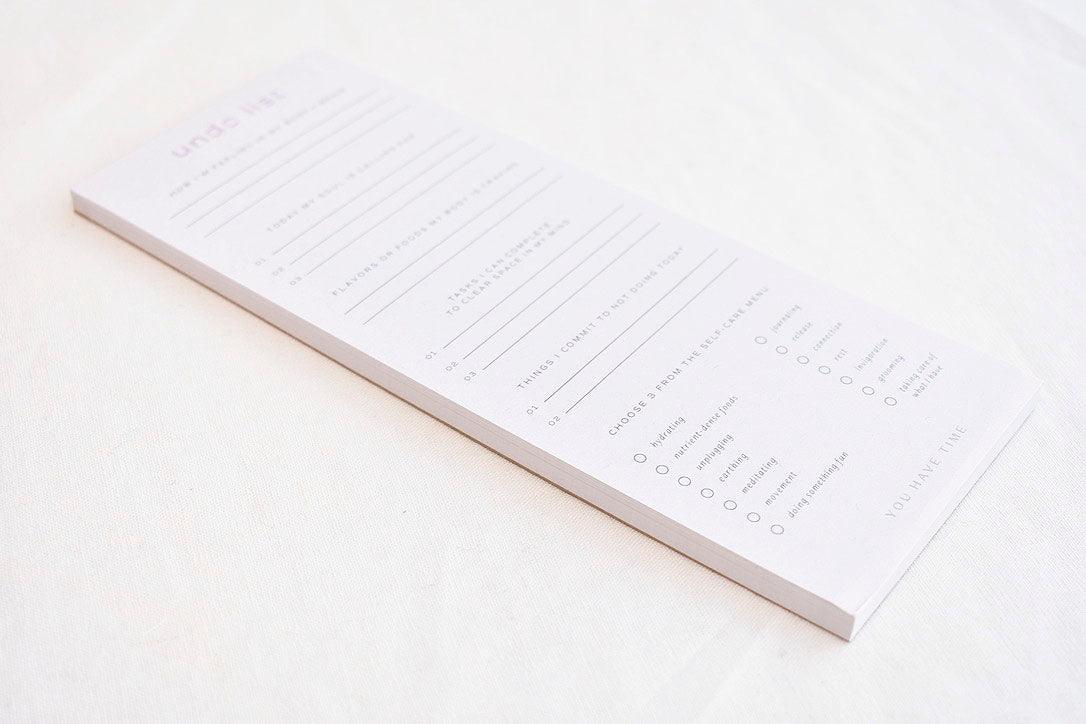 undo list
HOW I'M FEELING IN MY BODY + MIND
TODAY MY SOUL IS CALLING FOR
01
02
03
FLAVORS OR FOODS MY BODY IS CRAVING
TASKS I CAN COMPLETE
TO CLEAR SPACE IN MY MIND
01
02
03
THINGS I COMMIT TO NOT DOING TODAY
01
02
CHOOSE 3 FROM THE SELF-CARE MENU
hydrating
nutrient-dense foods
unplugging
earthing
meditating
movement
doing something fun
journaling
release
connection
rest
invigoration
grooming
taking care of
what I have
YOU HAVE TIME